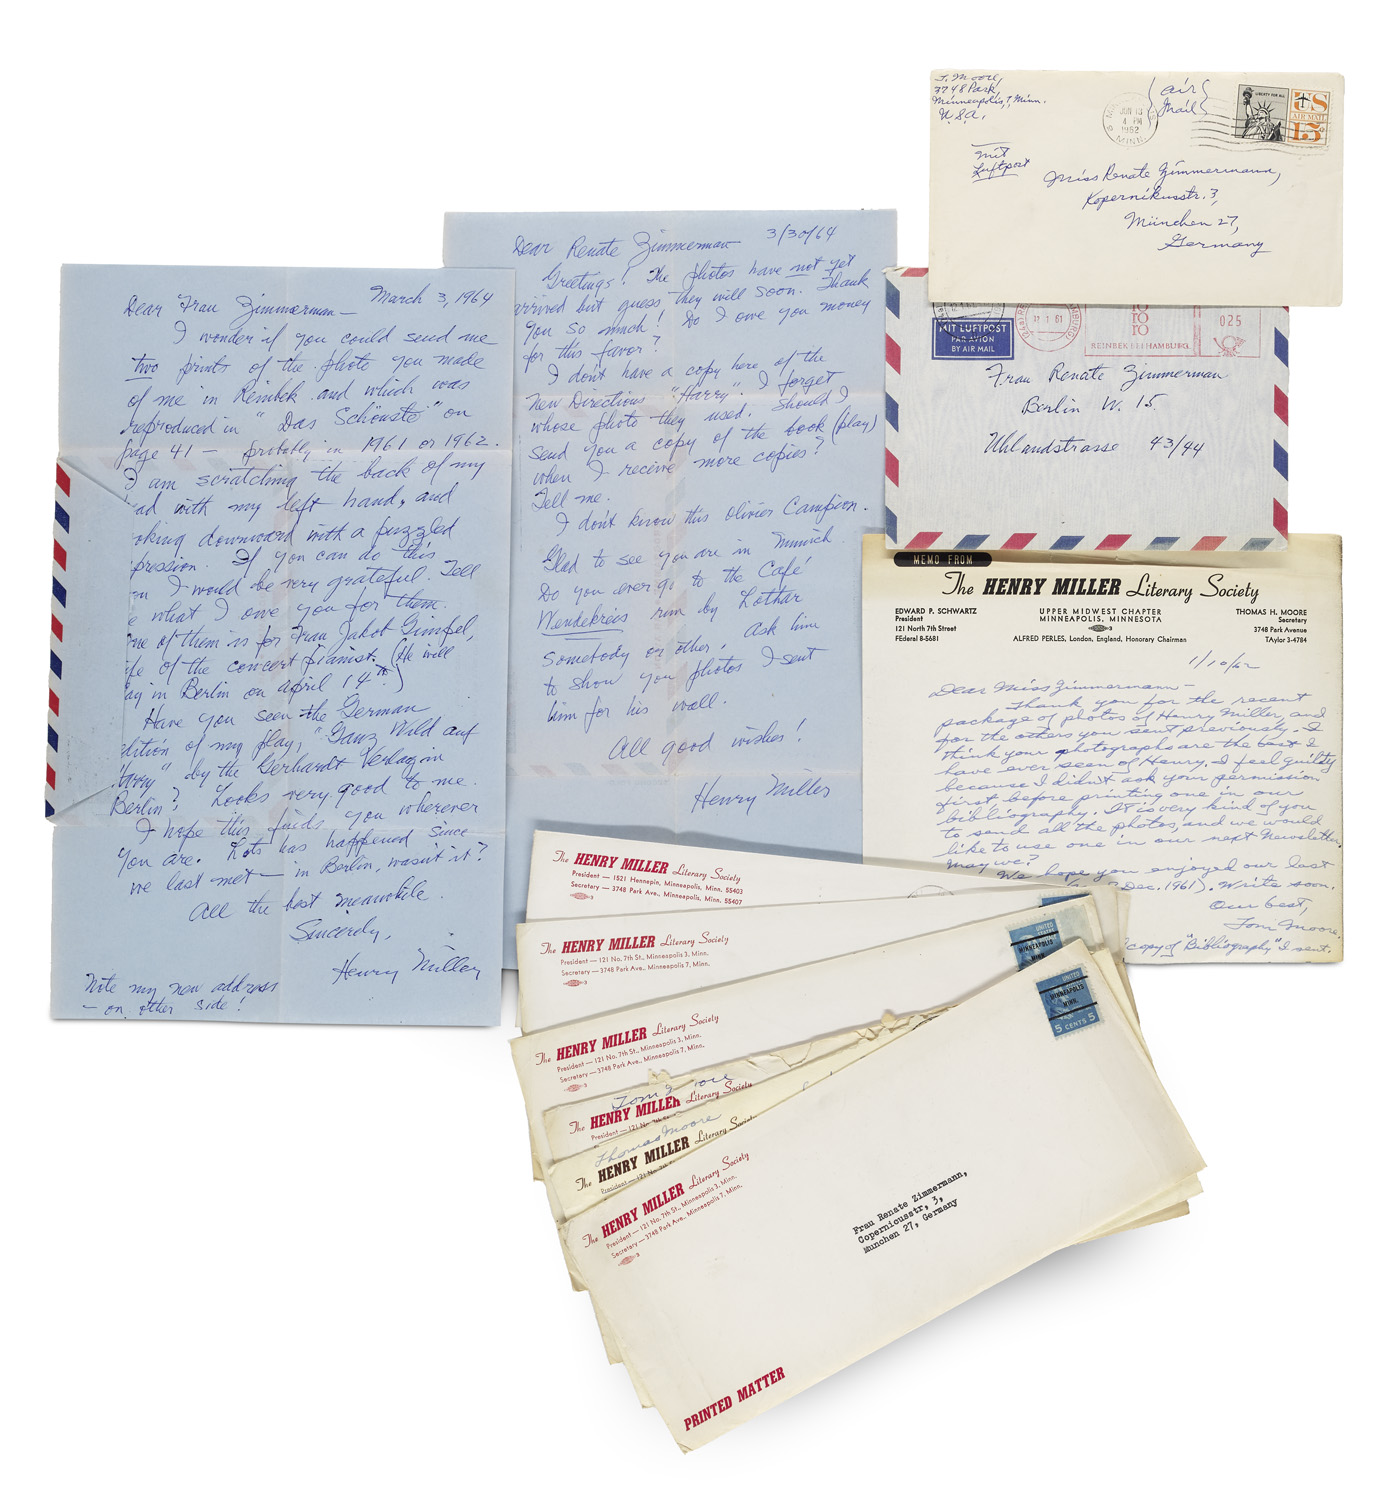 March 3, 1964
Dear Frau Zimmerman —
I wonder if you could send me
two prints of the photo you made
of me in Reinbek and which was
reproduced in "Das Schönste" on
page 41 — probably in 1961 or 1962.
I am scratching the back of my
ad with my left hand, and
oking downward with a puzzled
pression. If you can do this
I would be very grateful. Tell
what I owe you for them.
ne of them is for Frau Jakob Gimpel,
fe of the concert pianist. (He will
ay in Berlin on April 14th.)
Have you seen the German
dition of my play, "Ganz Wild auf
Harry" by the Gerhardt Verlag in
Berlin? Looks very good to me.
I hope this finds you wherever
you are. Lots has happened since
we last met — in Berlin, wasn't it?
All the best meanwhile.
Sincerely,
Henry Miller
Note my new address
— on other side!
3/30/64
Dear Renate Zimmerman
Greetings! The photos have not yet
arrived but guess they will soon. Thank
you so much! Do I owe you money
for this favor?
I don't have a copy here of the
New Directions "Harry". I forget
whose photo they used. Should I
send you a copy of the book (play)
when I receive more copies?
Tell me.
I don't know this Olivier Campion.
Glad to see you are in Munich.
Do you ever go to the Café
Wendekreis run by Lothar
Somebody or other, Ask him
to show you photos I sent
him for his wall.
All good wishes!
Henry Miller
T. Moore,
3748 Park,
Minneapolis, 7, Minn.
U.S.A.
JUN 13
4 PM
1962
MINN.
(air
mail)
LIBERTY FOR ALL
US
AIR MAIL
15¢
mit
Luftpost
Miss Renate Zimmermann,
Kopernikusstr. 3,
München 27,
Germany
MIT LUFTPOST
PAR AVION
BY AIR MAIL
1 61
ro
ro
REINBEK BEI HAMBURG
025
Frau Renate Zimmerman
Berlin W. 15
Uhlandstrasse 43/44
MEMO FROM
The HENRY MILLER Literary Society
EDWARD P. SCHWARTZ
President
121 North 7th Street
FEderal 8-5681
UPPER MIDWEST CHAPTER
MINNEAPOLIS, MINNESOTA
ALFRED PERLES, London, England, Honorary Chairman
THOMAS H. MOORE
Secretary
3748 Park Avenue
TAylor 3-4784
1/10/62
Dear Miss Zimmermann —
Thank you for the recent
package of photos of Henry Miller, and
for the others you sent previously. I
think your photographs are the best I
have ever seen of Henry. I feel guilty
because I didn't ask your permission
first before printing one in our
bibliography. It is very kind of you
to send all the photos, and we would
like to use one in our next Newsletter.
May we?
We hope you enjoyed our last
Dec. 1961). Write soon.
Our best,
Tom Moore.
copy of "Bibliography" I sent.
The HENRY MILLER Literary Society
President — 1521 Hennepin, Minneapolis, Minn. 55403
Secretary — 3748 Park Ave., Minneapolis, Minn. 55407
The HENRY MILLER Literary Society
President — 121 No. 7th St., Minneapolis 3, Minn.
Secretary — 3748 Park Ave., Minneapolis 7, Minn.
MINNEAPOLIS
MINN.
The HENRY MILLER Literary Society
President — 121 No. 7th St., Minneapolis 3, Minn.
Secretary — 3748 Park Ave., Minneapolis 7, Minn.
Tom Moore
The HENRY MILLER Literary Society
President — 121 No. 7th St.
Thomas Moore
The HENRY MILLER Literary Society
President — 121 No. 7th
The HENRY MILLER Literary Society
President — 121 No. 7th St., Minneapolis 3, Minn.
Secretary — 3748 Park Ave., Minneapolis 7, Minn.
UNITED
MINNEAPOLIS
MINN.
5 CENTS 5
Frau Renate Zimmermann,
Coperniousstr, 3,
Munchen 27, Germany
PRINTED MATTER